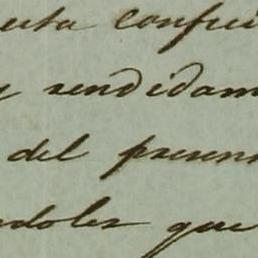 esta confui
y rendidam
del presen
ndoles que